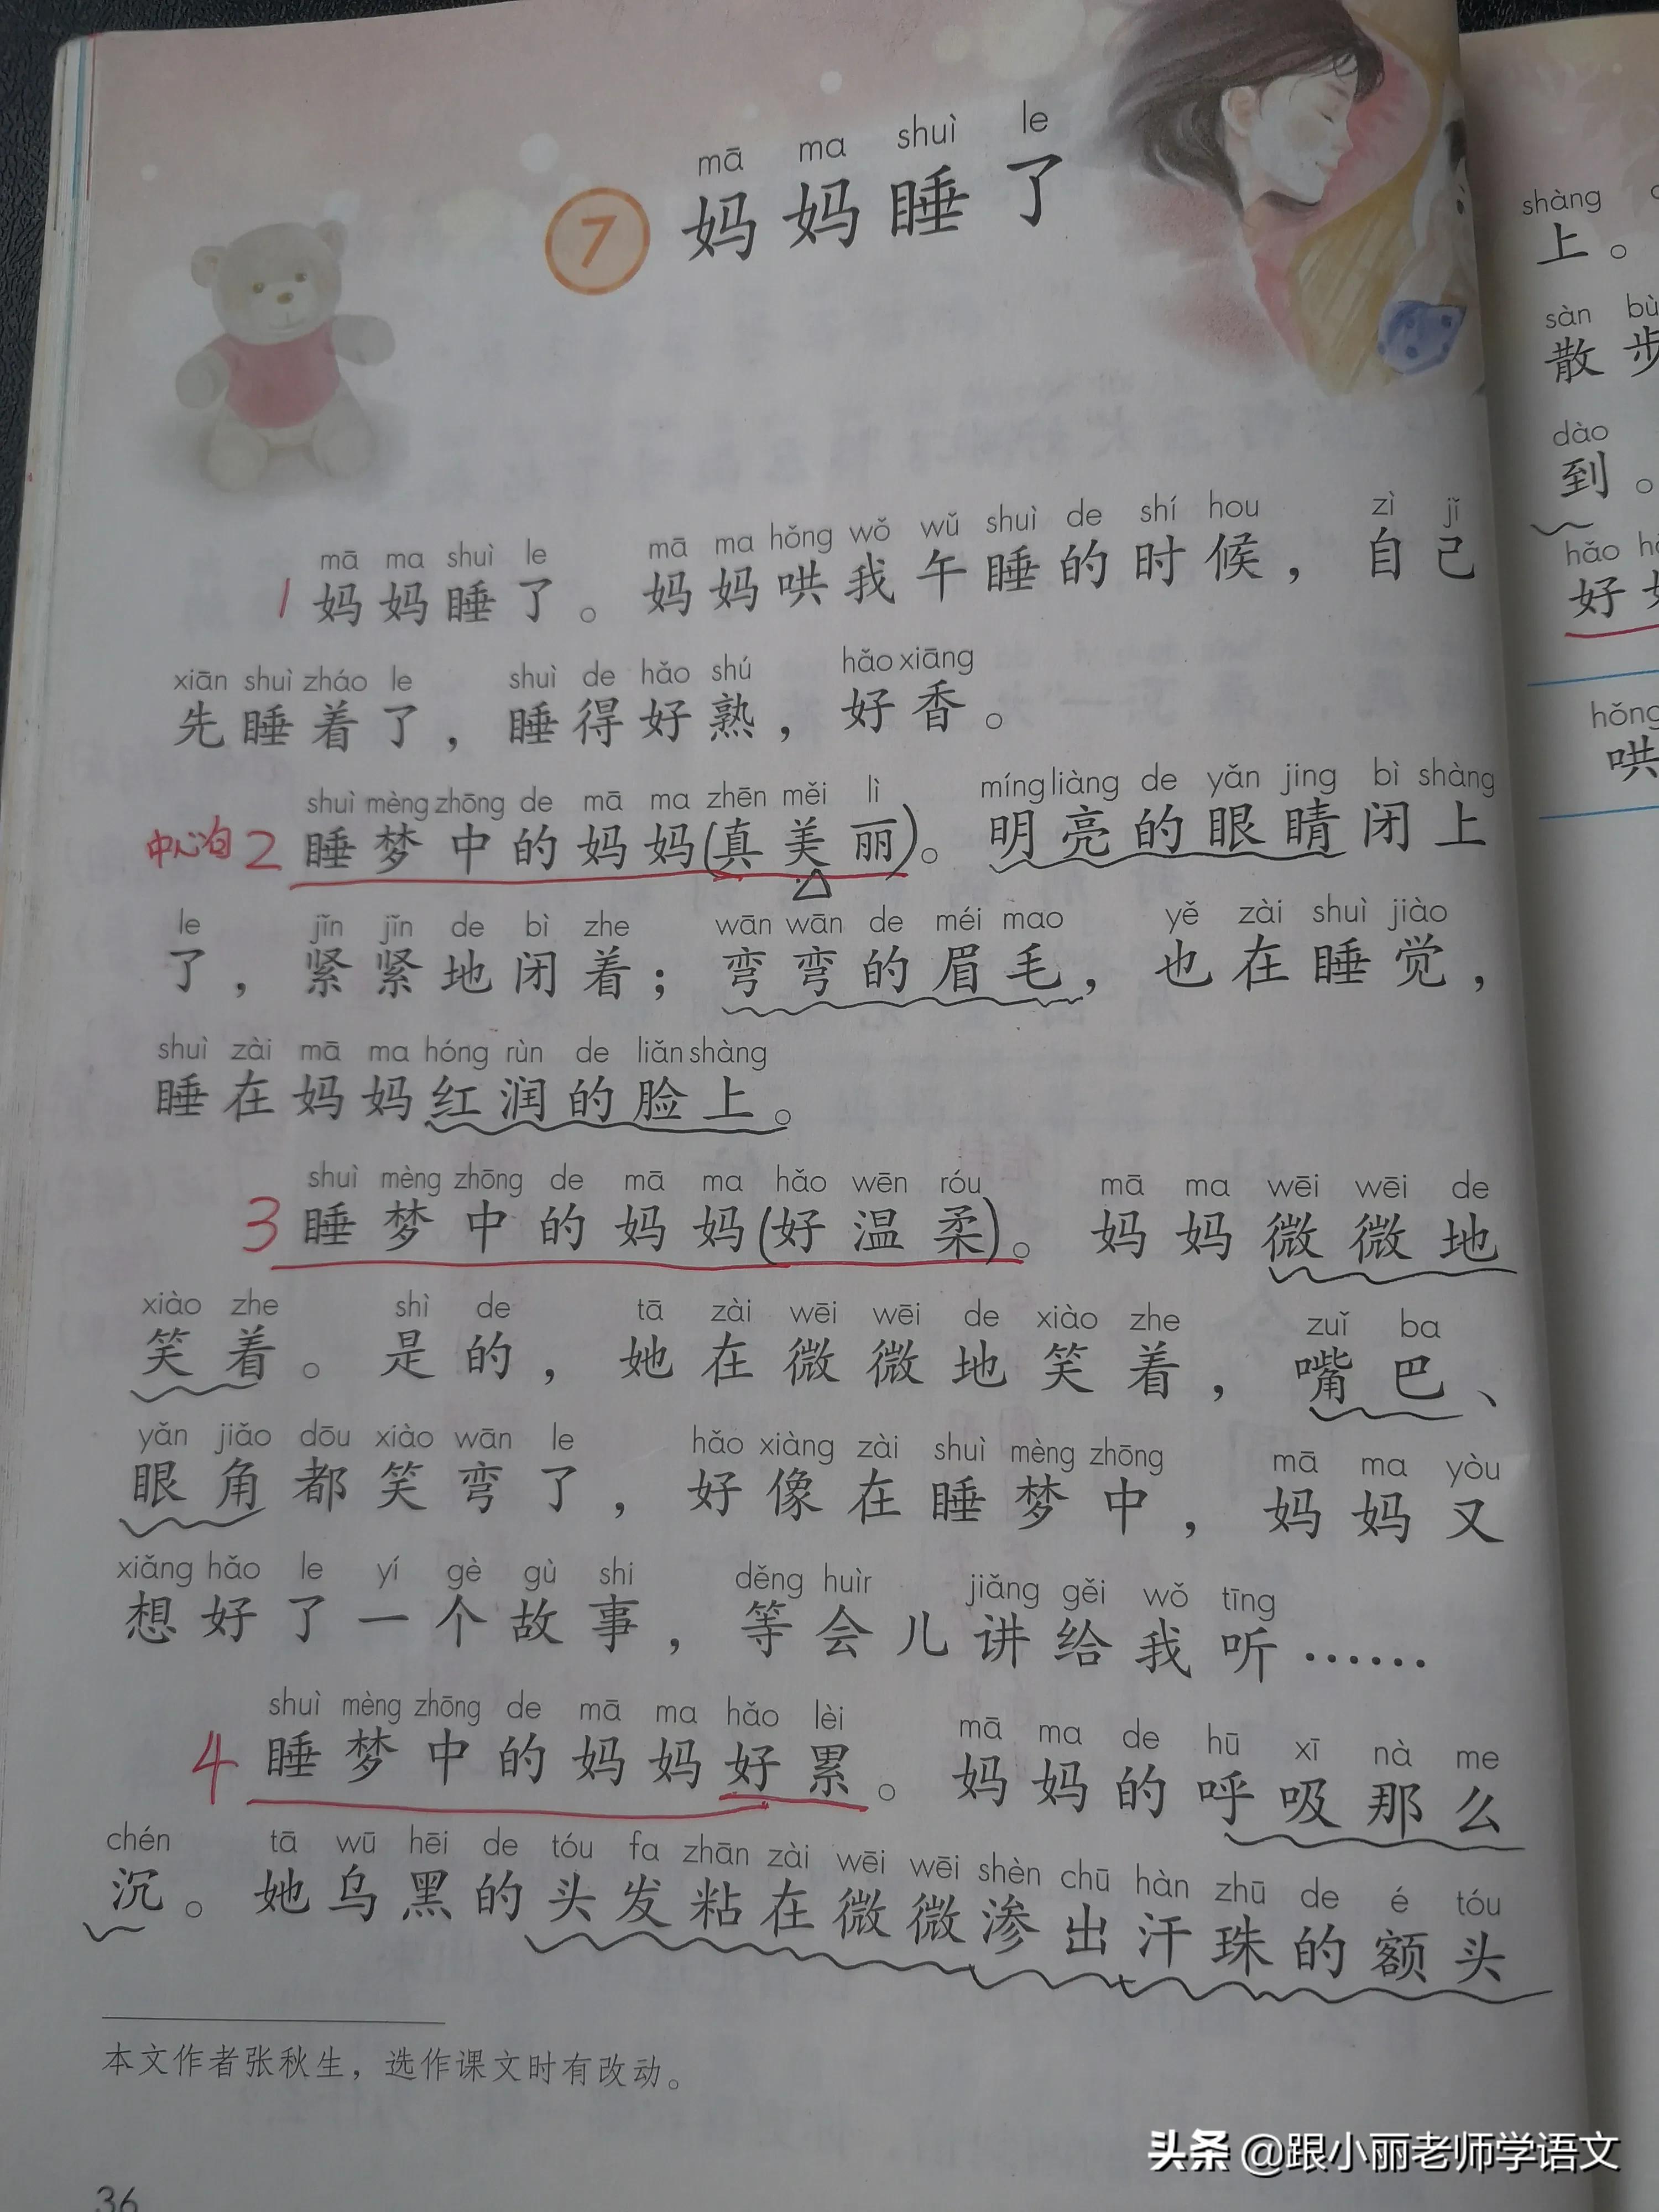 mā ma shuì le
7 妈妈睡了
mā ma shuì le mā ma hǒng wǒ wǔ shuì de shí hou zì jǐ
1 妈妈睡了。妈妈哄我午睡的时候，自己
xiān shuì zháo le shuì de hǎo shú hǎo xiāng
先睡着了，睡得好熟，好香。
shuì mèng zhōng de mā ma zhēn měi lì míng liàng de yǎn jing bì shàng
中心句 2 睡梦中的妈妈(真美丽)。明亮的眼睛闭上
le jǐn jǐn de bì zhe wān wān de méi mao yě zài shuì jiào
了，紧紧地闭着；弯弯的眉毛，也在睡觉，
shuì zài mā ma hóng rùn de liǎn shàng
睡在妈妈红润的脸上。
shuì mèng zhōng de mā ma hǎo wēn róu mā ma wēi wēi de
3 睡梦中的妈妈(好温柔)。妈妈微微地
xiào zhe shì de tā zài wēi wēi de xiào zhe zuǐ ba
笑着。是的，她在微微地笑着，嘴巴、
yǎn jiǎo dōu xiào wān le hǎo xiàng zài shuì mèng zhōng mā ma yòu
眼角都笑弯了，好像在睡梦中，妈妈又
xiǎng hǎo le yí gè gù shi děng huìr jiǎng gěi wǒ tīng
想好了一个故事，等会儿讲给我听……
shuì mèng zhōng de mā ma hǎo lèi mā ma de hū xī nà me
4 睡梦中的妈妈好累。妈妈的呼吸那么
chén tā wū hēi de tóu fa zhān zài wēi wēi shèn chū hàn zhū de é tóu
沉。她乌黑的头发粘在微微渗出汗珠的额头
本文作者张秋生，选作课文时有改动。
36
shàng
上。
sàn bù
散步
dào
到。
hǎo
好
hǒng
哄
头条 @跟小丽老师学语文